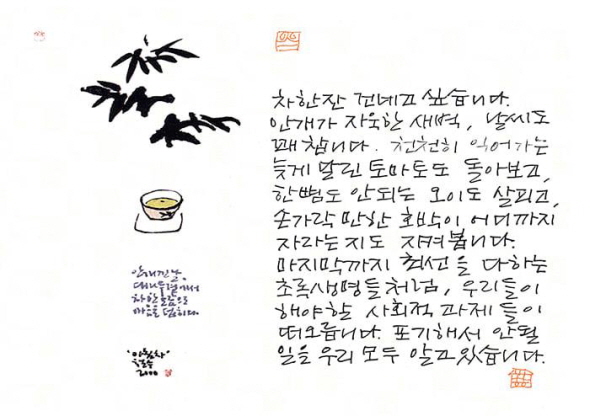 차한잔 건네고 싶습니다.
안개가 자욱한 새벽, 날씨도
꽤 찹니다. 천천히 익어가는
늦게 달린 토마토도 돌아보고,
한뼘도 안되는 오이도 살피고,
손가락 만한 호박이 어디까지
자라는지도 지켜봅니다.
마지막까지 최선을 다하는
초록생명들처럼, 우리들이
해야할 사회적 과제 들이
떠오릅니다. 포기해서 안될
일을 우리 모두 알고 있습니다.
안개낀 날,
차한
마음을 덥히다.
2000